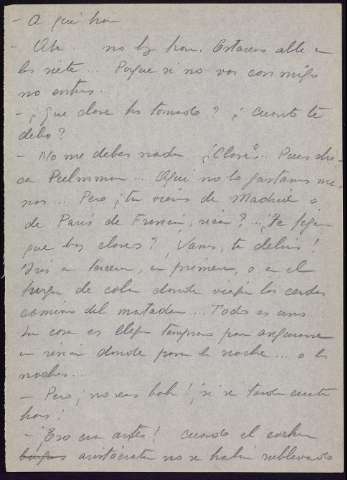 - A qué hora
- Ah... no hay hora. Estaremos allí a
las siete... Porque si no vas conmigo
no entras.
- ¿Qué clase has tomado? ¿Cuánto te
debo?
- No me debes nada. ¿Clase?... Pues
Pullman... Aquí no la gastamos me-
nos... Pero ¿tú vienes de Madrid o
de París de Francia, ¿Te
que hay clases? ¡Vamos, tú deliras!
Irás en tercera, en primera, o en el
furgón de cola donde viajan los cerdos
camino del matadero... Todo es uno.
La cosa es llegar temprano para asegurarse
un rincón donde pasar la noche... o las
noches...
- Pero, ¡no seas bobo! ¡si se tarda cuatro
horas!
- ¡Eso era antes! Cuando el
aristócrata no se había sublevado